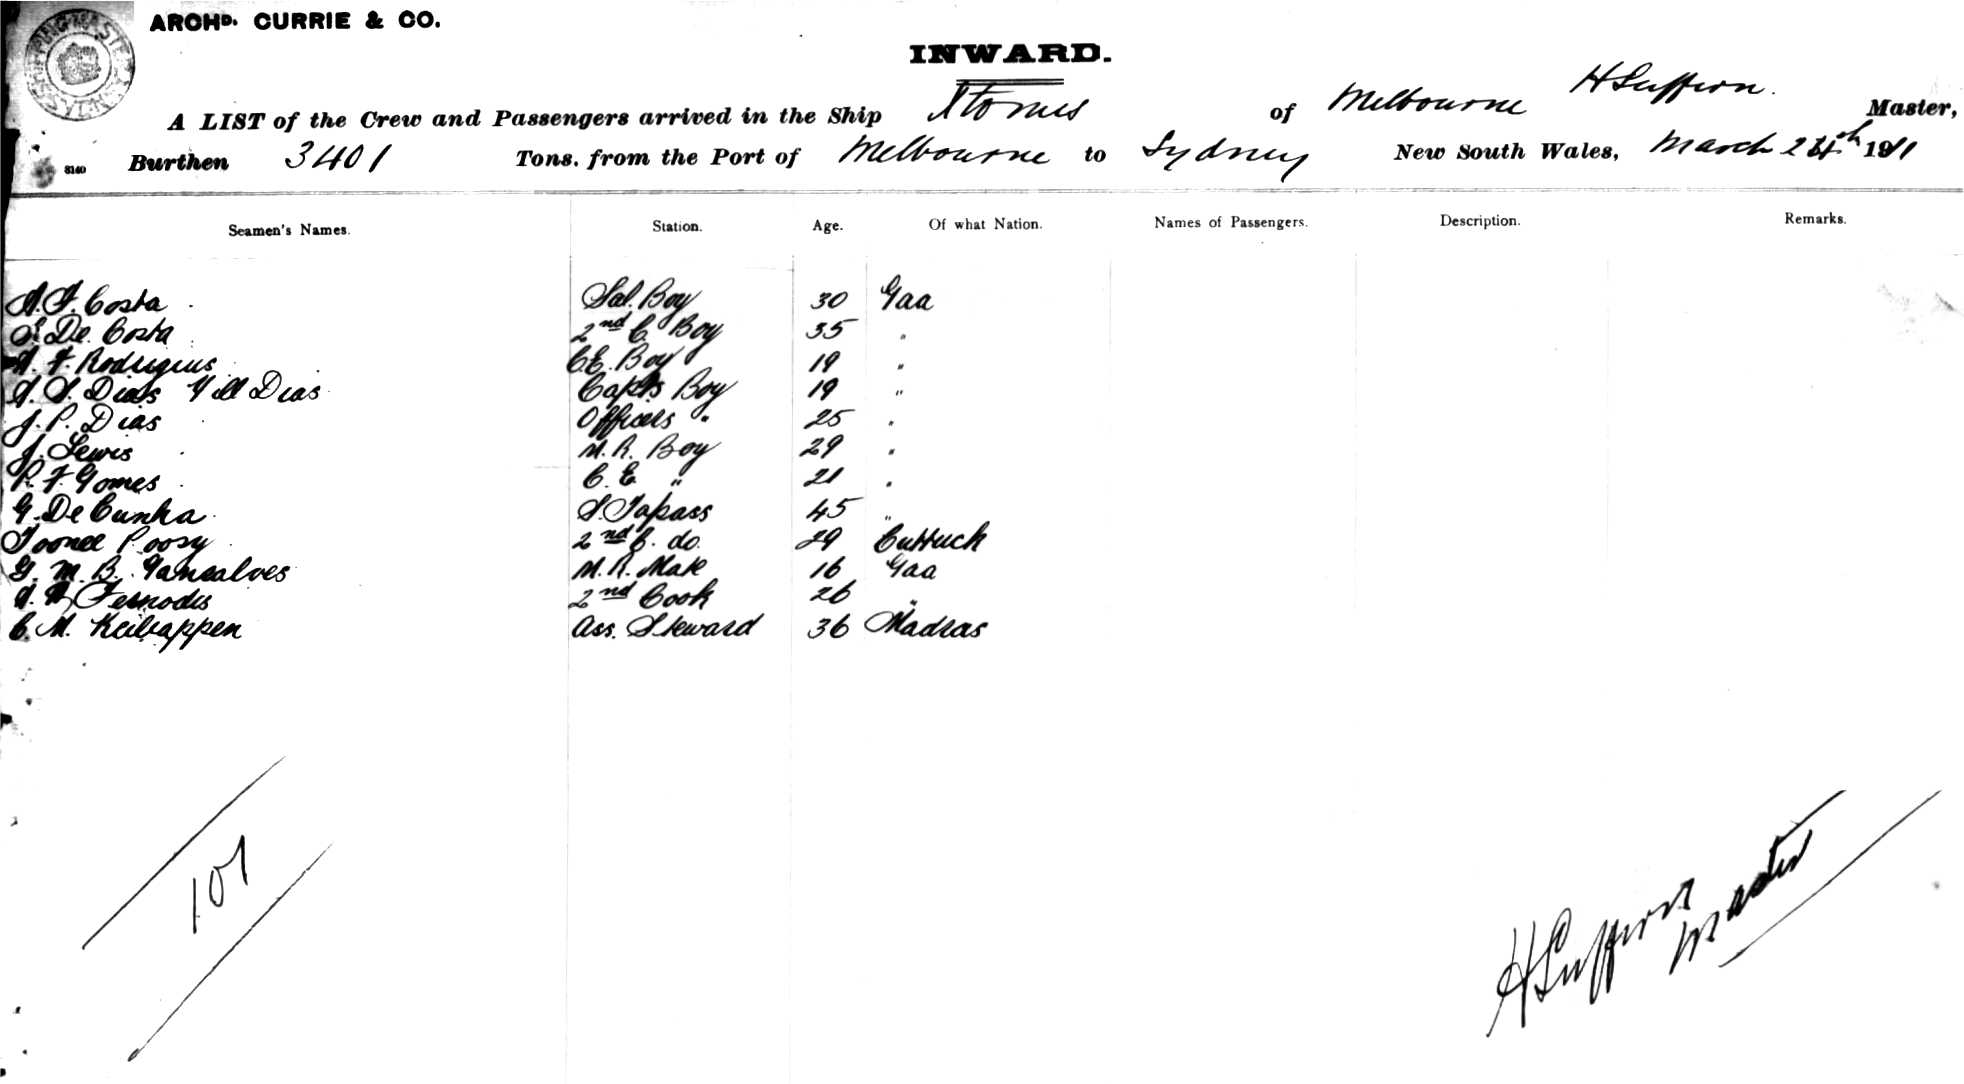 ARCHD. CURRIE & CO.
INWARD.
A LIST of the Crew and Passengers arrived in the Ship of Melbourne H Suffern. Master,
8140 Burthen 3401 Tons. from the Port of Melbourne to Sydney New South Wales, March 24th 1911
Seamen's Names. Station. Age. Of what Nation. Names of Passengers. Description. Remarks.
Costa Sal. Boy 30 Goa
De Costa 2nd C. Boy 35 "
F. Rodrigues C.E. Boy 19 "
Dias Dias Capts Boy 19 "
J. P. Dias Officers " 25 "
J. Lewis M. R. Boy 29 "
P. F Gomes C. E. " 21 "
G. De Cunha S. Topass 45 "
Poosy 2nd C. do. 29 Cuttuck
G. M. B. Gonsalves M. R. Mate 16 Goa
2nd Cook 26 "
C. M. Ass. Steward 36 Madras
107
H Suffern
Master